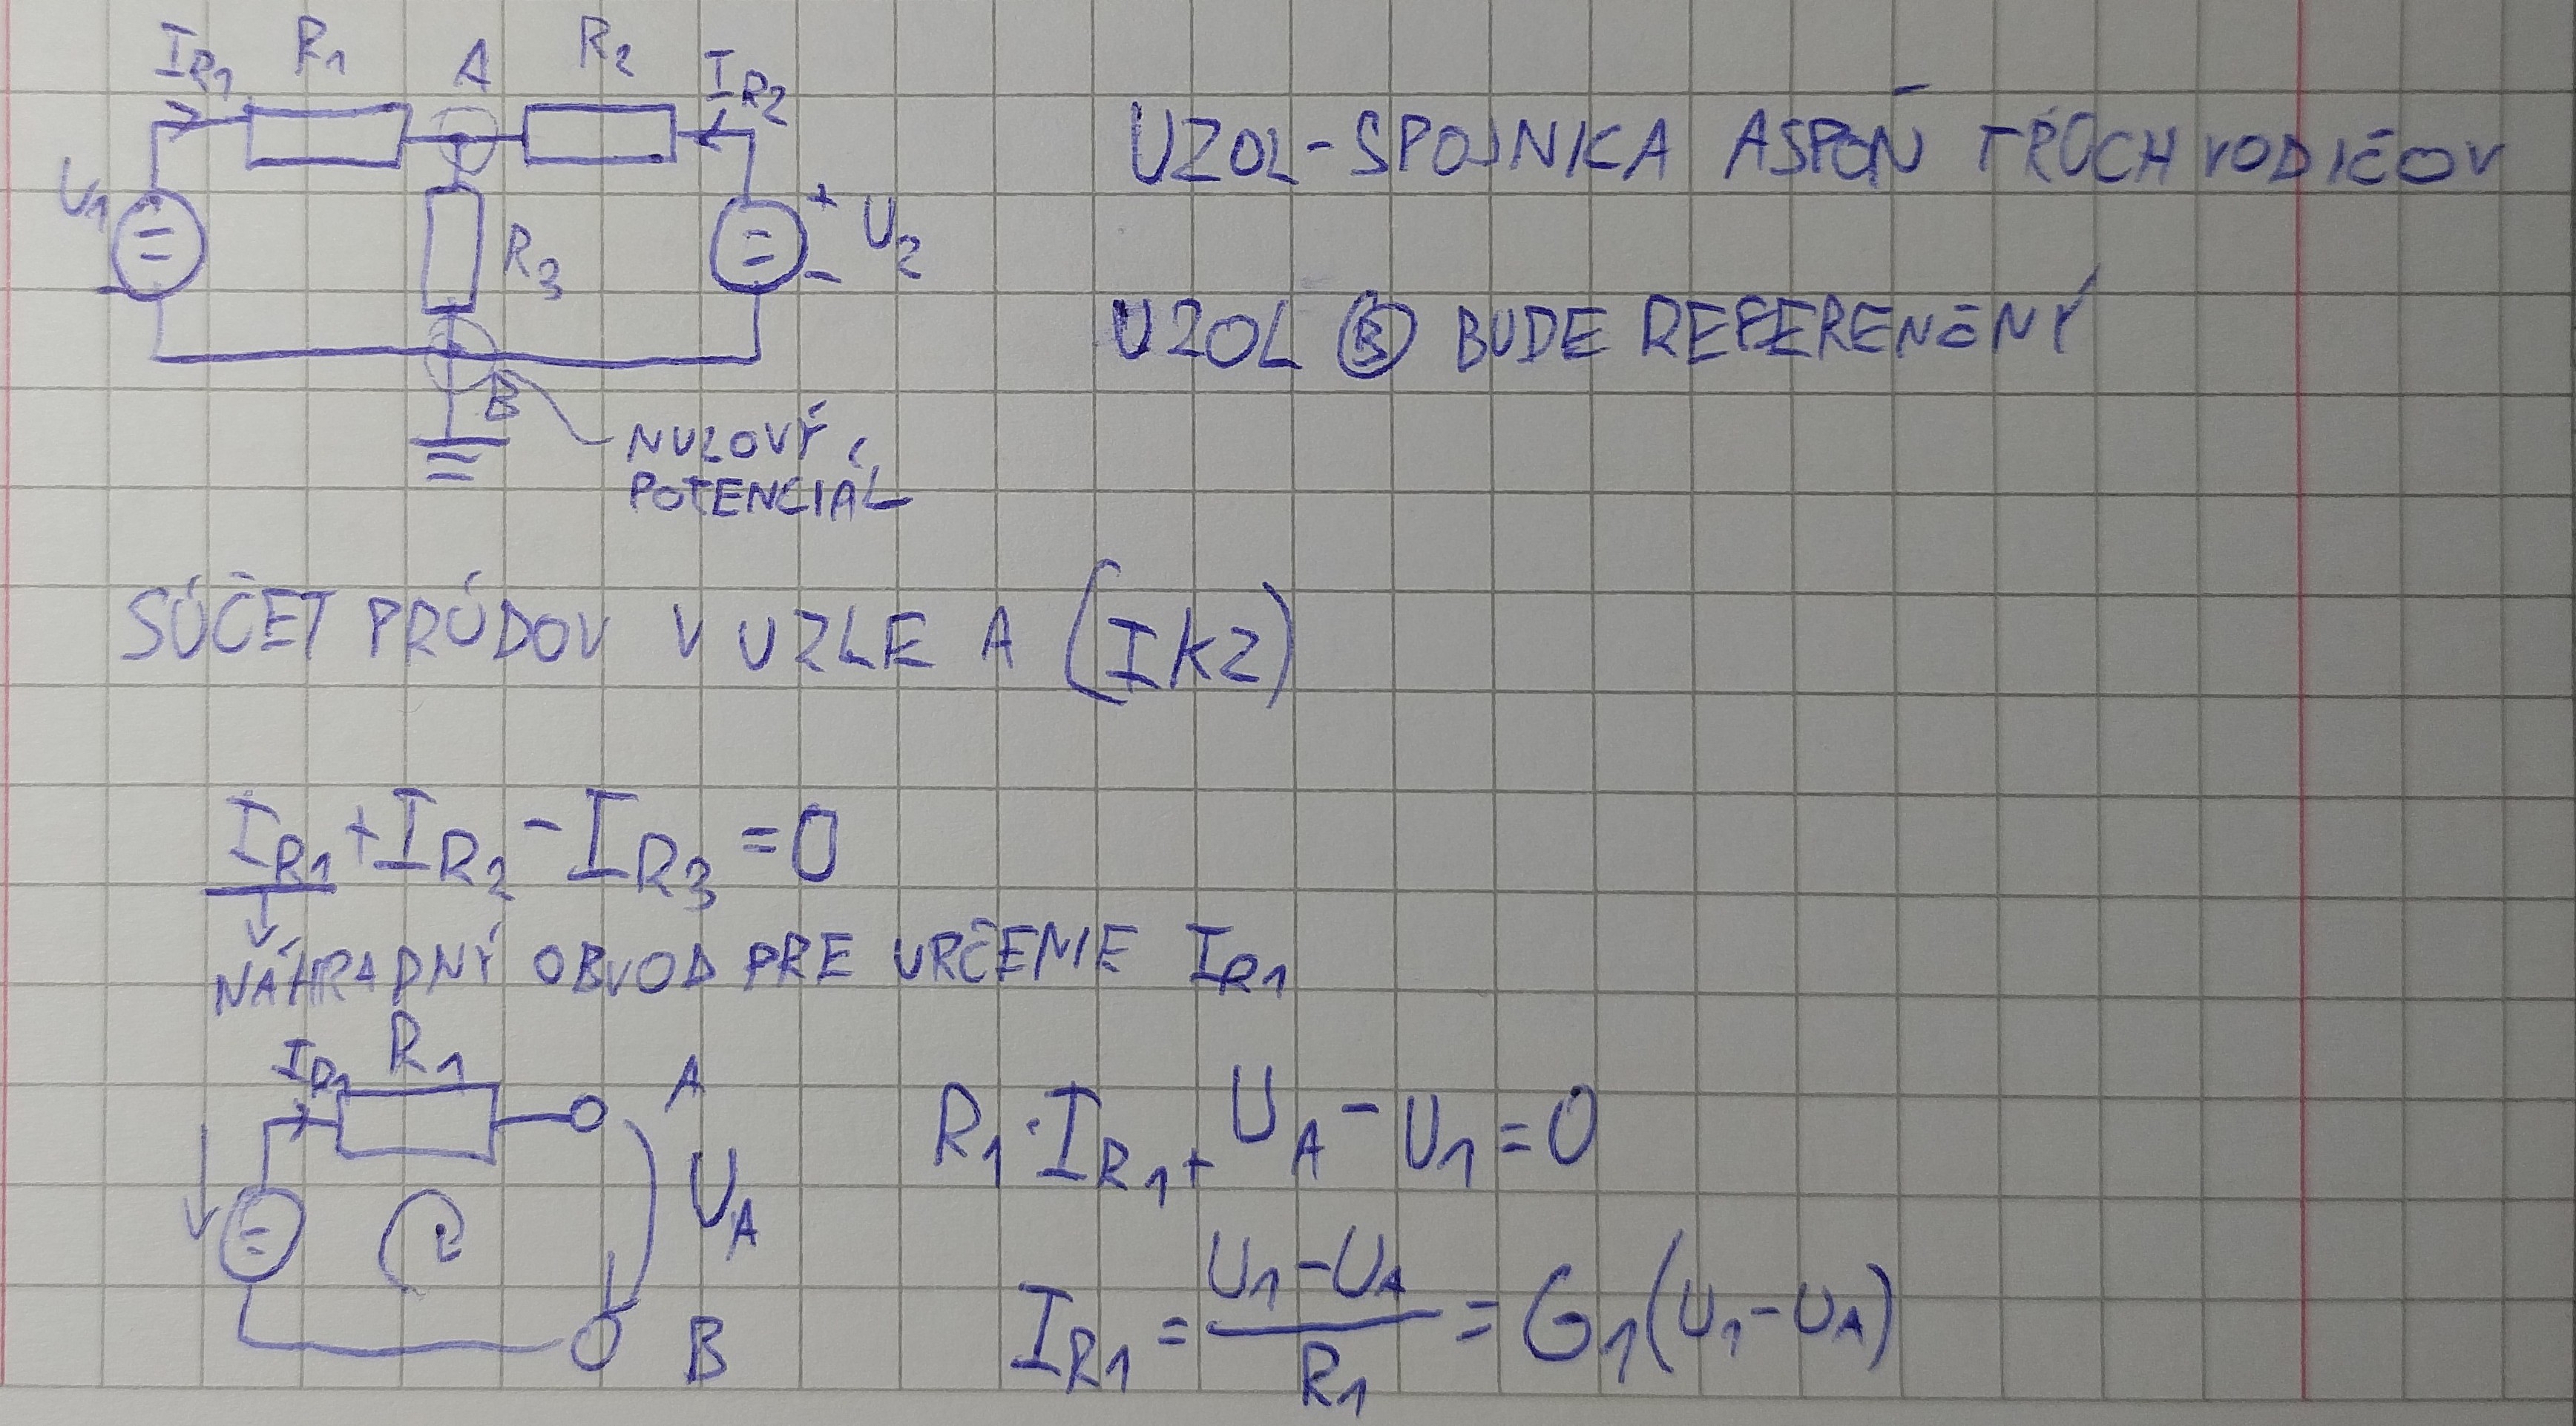 I_R1 R1 A R2 I_R2
U1 R3 + U2 -
B
NULOVÝ
POTENCIÁL
UZOL-SPOJNICA ASPOŇ TROCH VODIČOV
UZOL Ⓑ BUDE REFERENČNÝ
SÚČET PRÚDOV V UZLE A (IKZ)
I_R1 + I_R2 - I_R3 = 0
NÁHRADNÝ OBVOD PRE URČENIE I_R1
I_R1 R1 A
U_A
B
R1 · I_R1 + U_A - U1 = 0
I_R1 = (U1 - U_A) / R1 = G1(U1 - U_A)